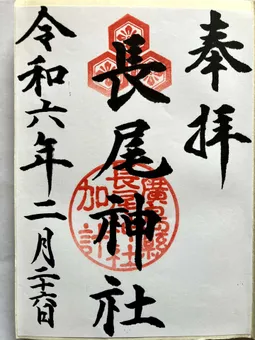 奉拝
長尾神社
令和六年二月二十六日
廣島縣
長尾神社
加計